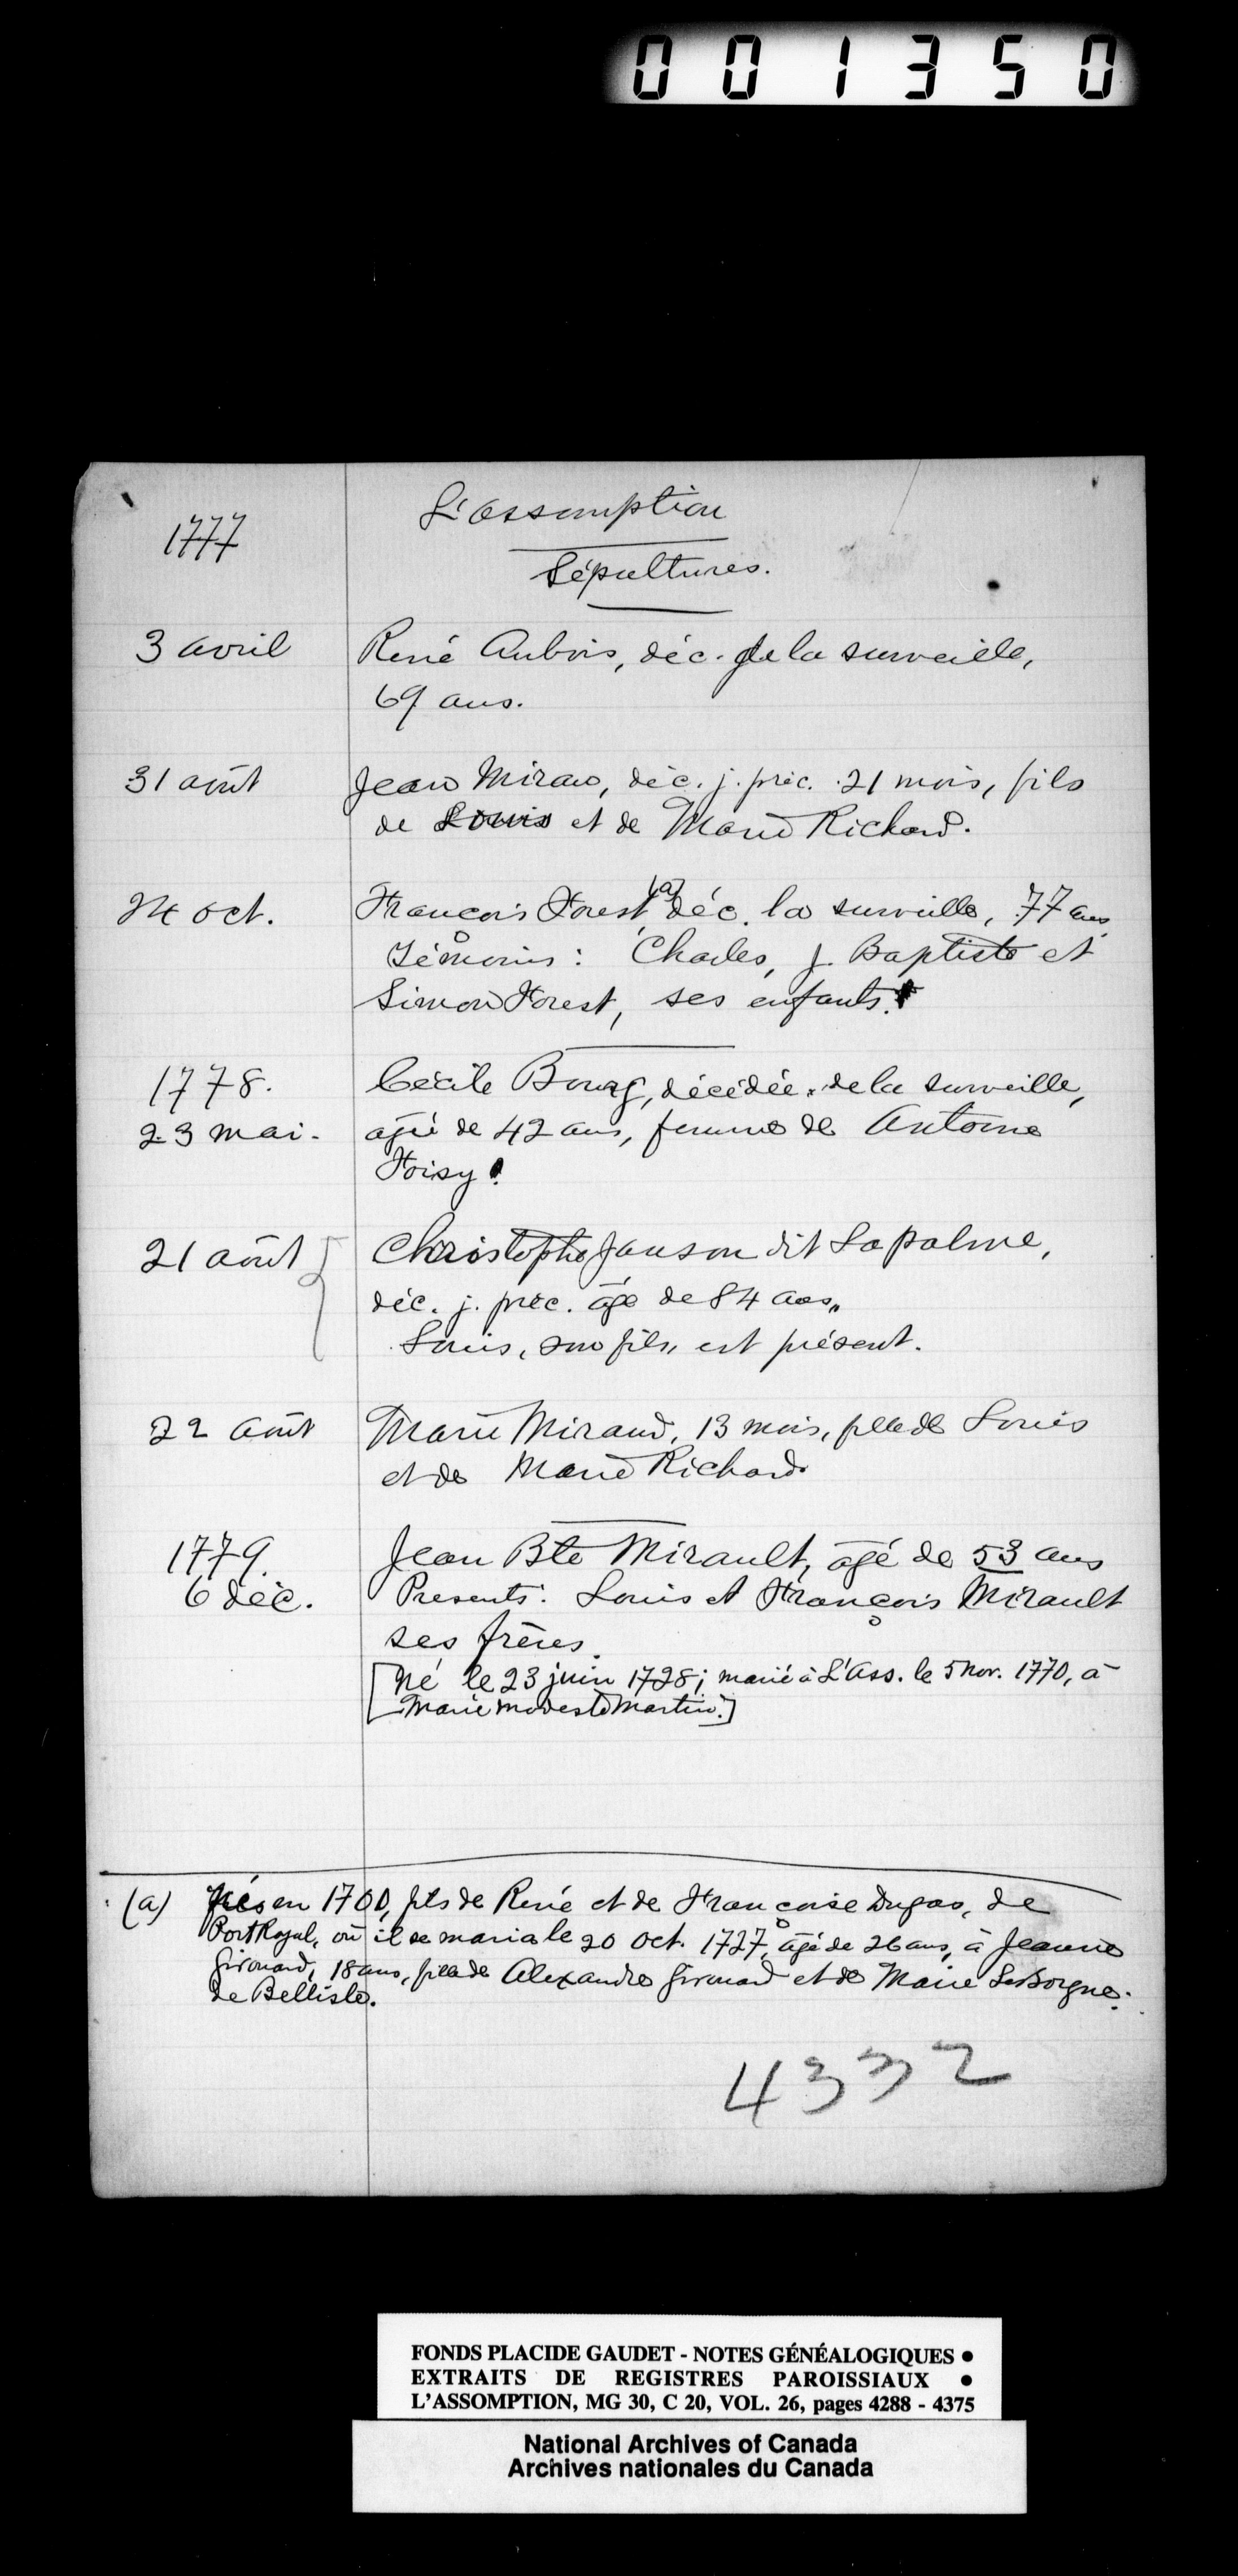 001350
L'assomption
1777
Sépultures.
3 avril René Aubois, déc. de la surveille,
69 ans.
31 août Jean Mirau, déc. j. préc. 21 mois, fils
de Louis et de Marie Richard.
24 oct. François Forest, (a) déc. la surveille, 77 ans
Témoins : Charles, J. Baptiste et
Simon Forest, ses enfants.
1778. Cécile Bourg, décédée de la surveille,
23 mai. agée de 42 ans, femme de Antoine
Foisy.
21 août Christophe Janson dit Lapalme,
déc. j. préc. âgé de 84 ans.
Louis, son fils, est présent.
22 août Marie Miraud, 13 mois, fille de Louis
et de Marie Richard
1779. Jean Bte Mirault, âgé de 53 ans
6 déc. Presents : Louis et François Mirault
ses frères.
[Né le 23 juin 1728; marié à L'Ass. le 5 nov. 1770, à
Marie Modeste Martin.]
(a) Né en 1700, fils de René et de Françoise Dugas, de
Port Royal, où il se maria le 20 oct. 1727, âgé de 26 ans, à Jeanne
Girouard, 18 ans, fille de Alexandre Girouard et de Marie LeBorgne
de Bellisle.
4332
FONDS PLACIDE GAUDET - NOTES GÉNÉALOGIQUES •
EXTRAITS DE REGISTRES PAROISSIAUX •
L'ASSOMPTION, MG 30, C 20, VOL. 26, pages 4288 - 4375
National Archives of Canada
Archives nationales du Canada